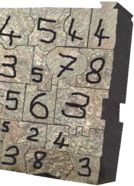 4 5 4 4
3 5 7 8
5 6 3
5 2 4
3 8 3